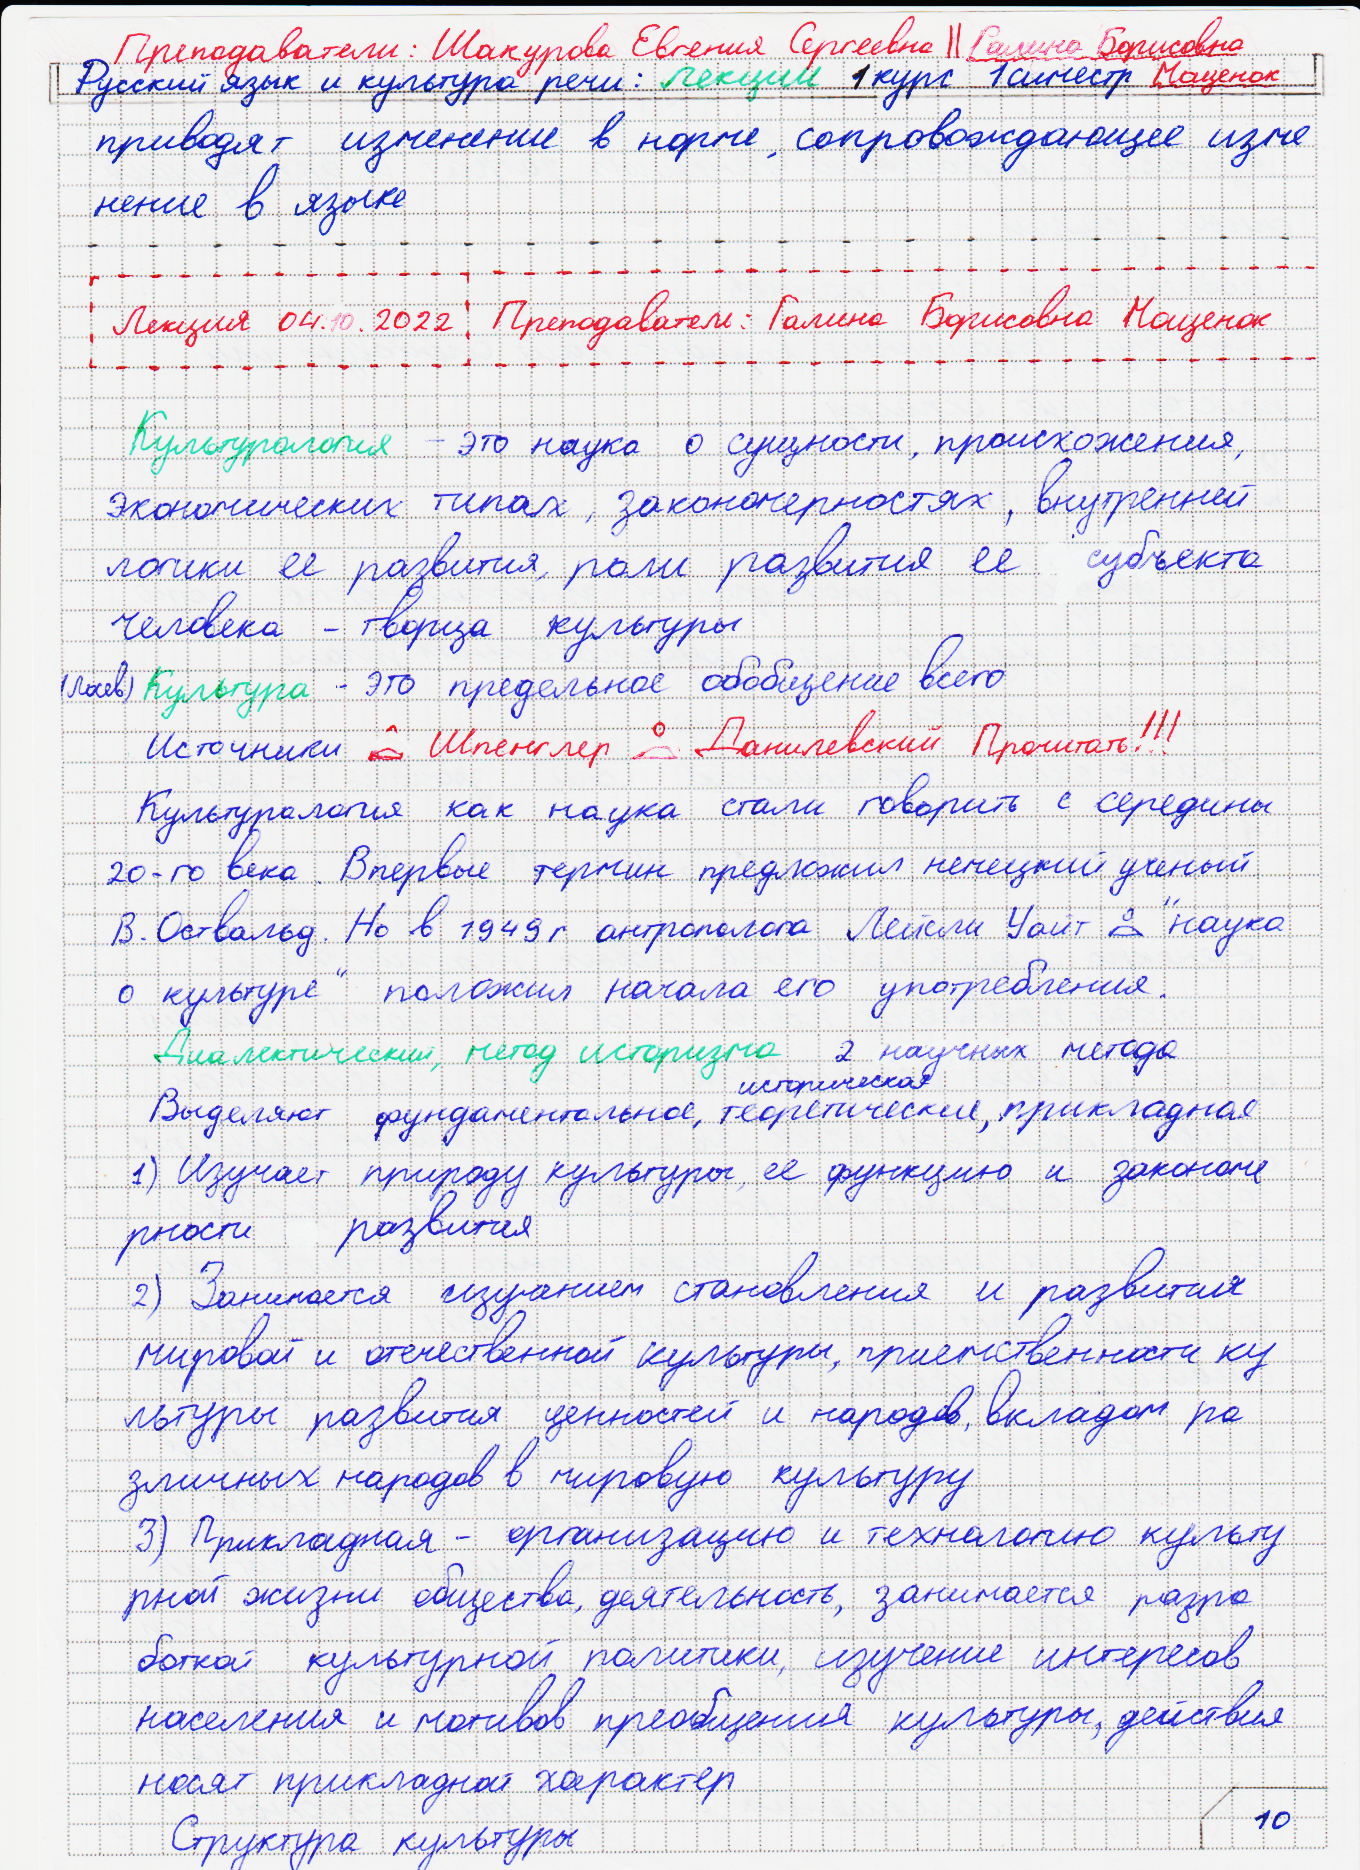 Преподаватели: Шакурова Евгения Сергеевна || Галина Борисовна
Русский язык и культура речи: лекции 1 курс 1 симестр Мащенок
приводят изменение в норме, сопровождающее изме
нение в языке
Лекция 04.10.2022 Преподаватель: Галина Борисовна Мащенок
Культурология - это наука о сущности, происхожения,
экономических типах, закономерностях, внутренней
логики ее развития, роли развития ее субъекта
человека - творца культуры
(Лосев) Культура - это предельное обобщение всего
Источники Шпенглер Данилевский Прочитать!!!
Культурология как наука стали говорить с середины
20-го века. Впервые термин предложил немецкий ученый
В. Оствальд. Но в 1949 г антрополога Лейсли Уайт "наука
о культуре" положил начала его употребления.
Диалектический, метод историзма 2 научных метода
историческая
Выделяют фундаментальное, теоретические, прикладная
1) Изучает природу культуры, ее функцию и закономе
рности развития
2) Занимается изучанием становления и развития
мировой и отечественной культуры, приемственности ку
льтуры развития ценностей и народов, вкладом ра
зличных народов в мировую культуру
3) Прикладная - организацию и технологию культу
рной жизни общества, деятельность, занимается разра
боткой культурной политики, изучение интересов
населения и мотивов преобщения культуры, действия
носят прикладной характер
Структура культуры
10